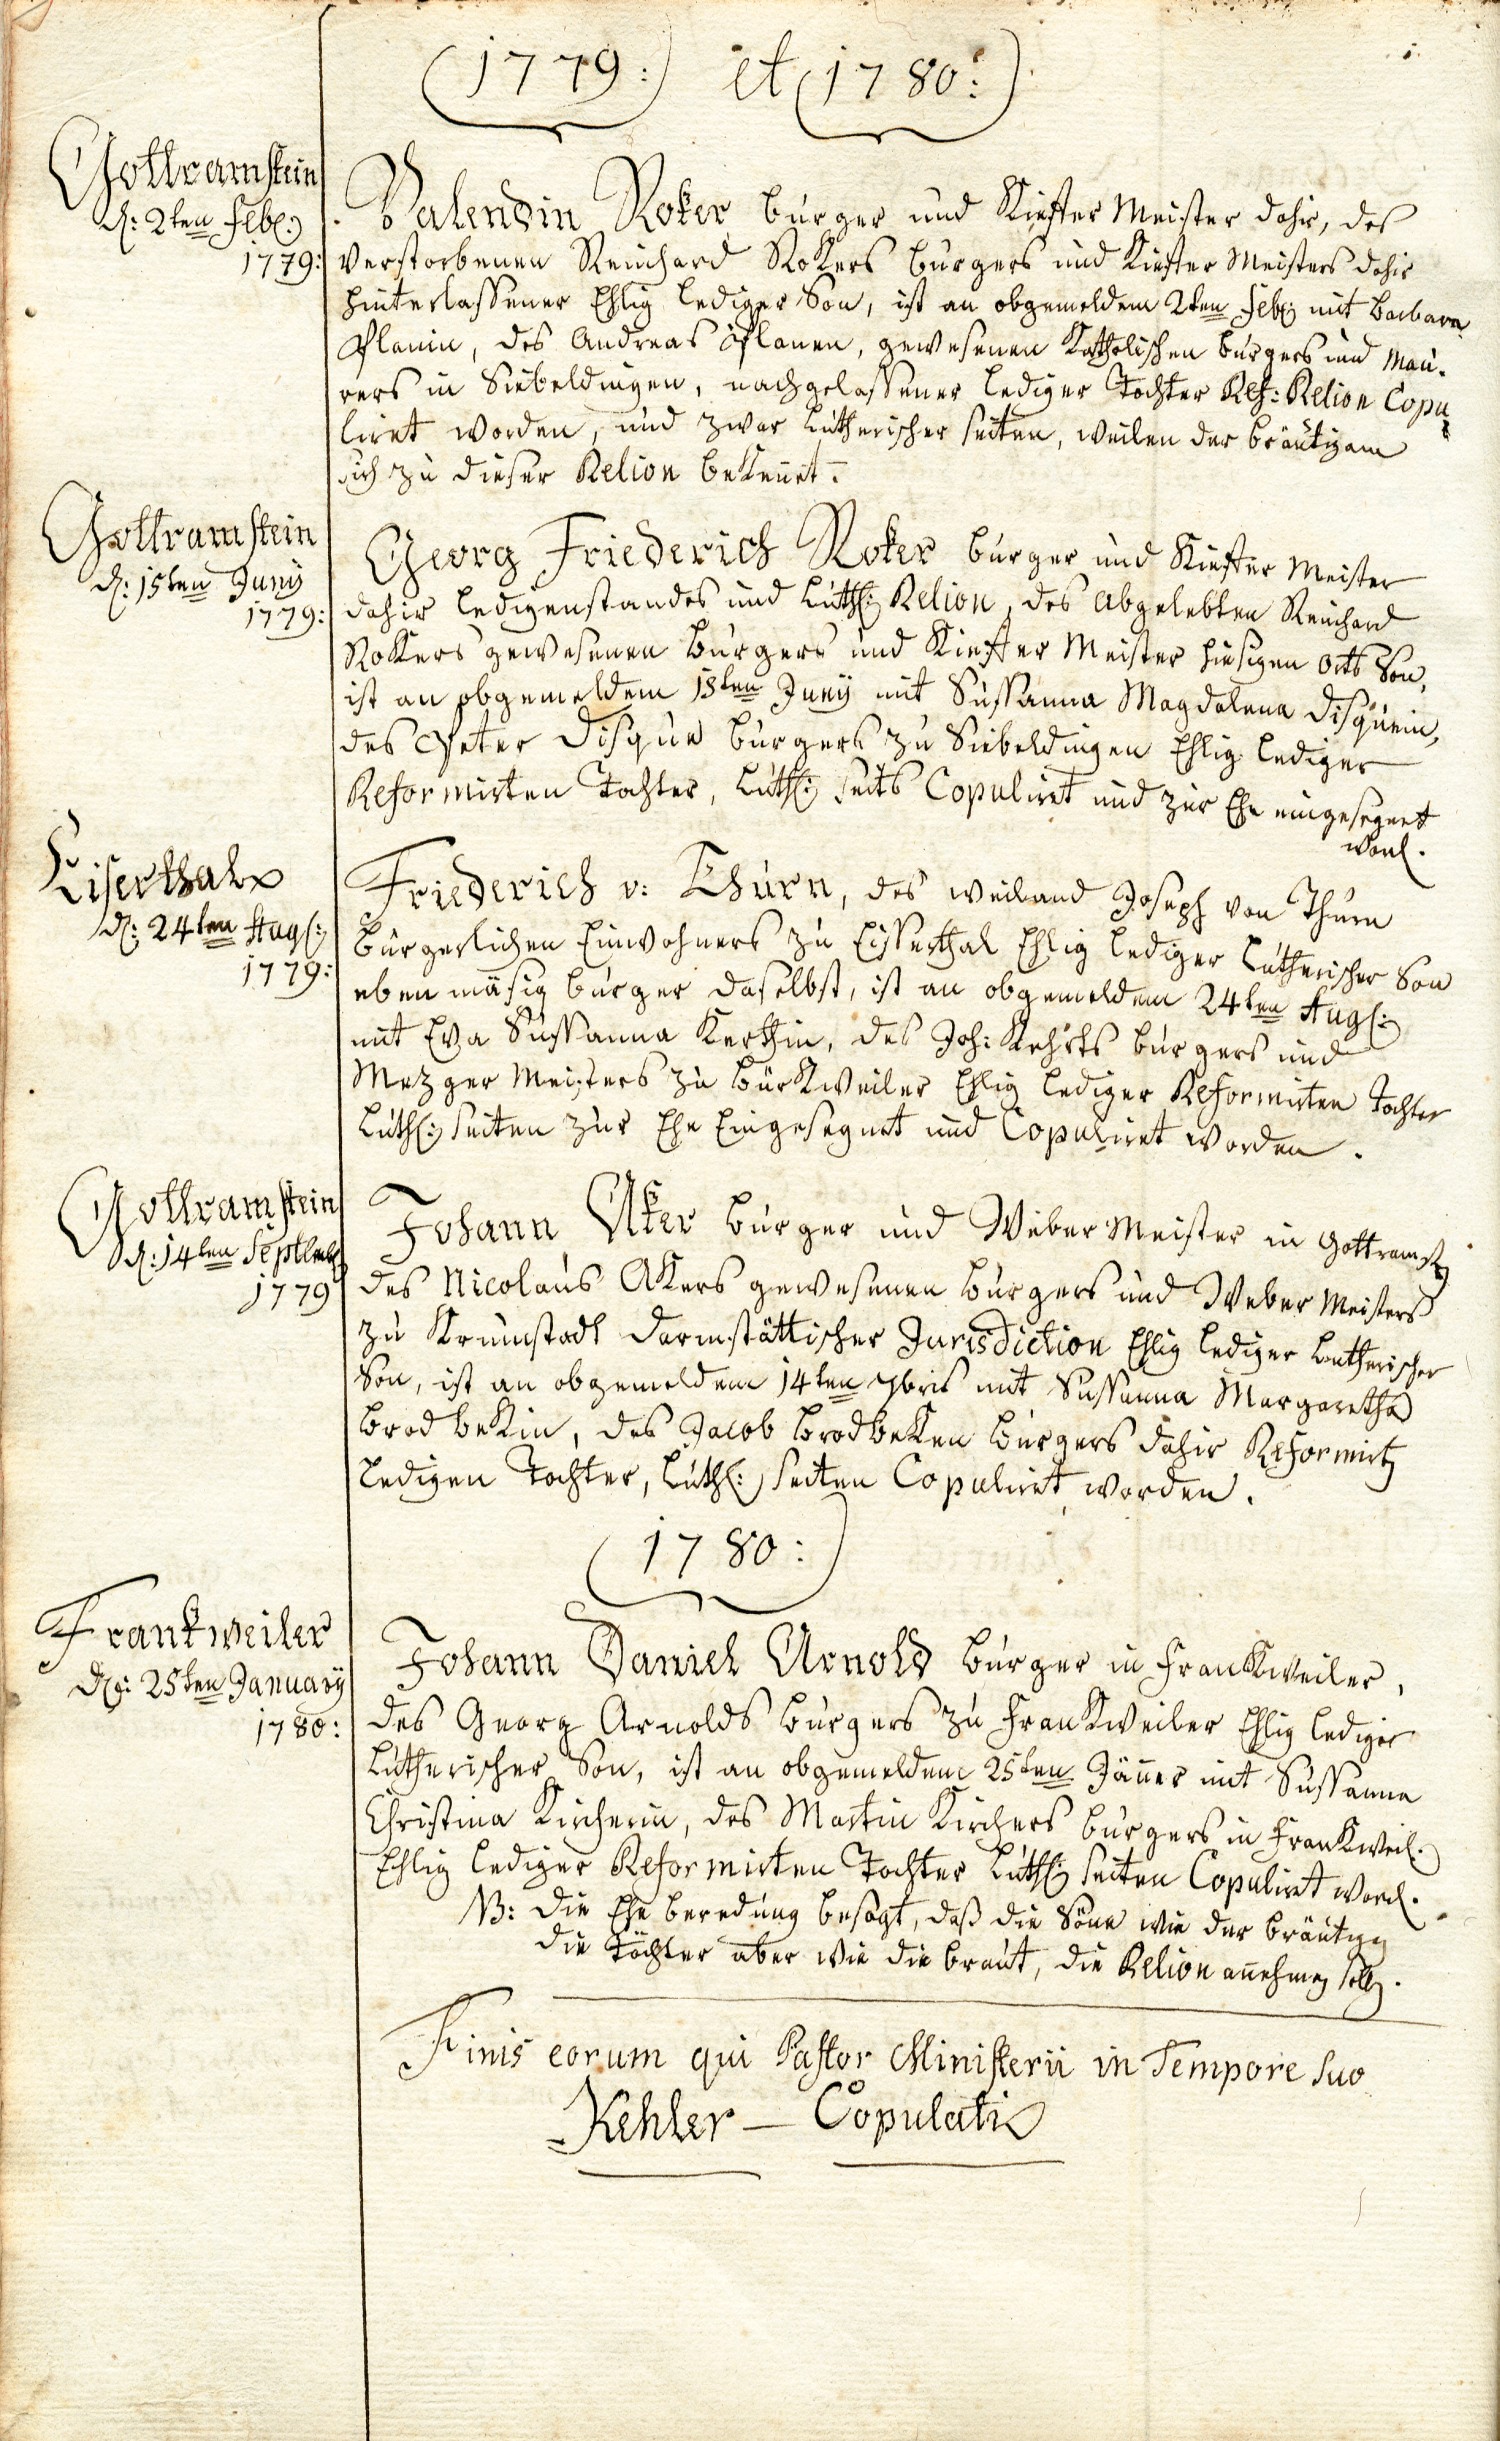 1779: et 1780:
Gottramstein
d: 2ten Feb:
1779:
Valendin Roker burger und Kieffer Meister dahir, des
verstorbenen Reinhard Rokers burgers und Kieffer Meisters dahir
hinterlassener Ehlig lediger Son, ist an obgemeldem 2ten Feb: mit Barbara
Planin, des Andreas Planen, gewesenen Katholischen burgers und Mau-
rers in Siebeldingen, nachgelassener lediger Tochter Ref: Relion Copu
liret worden, und zwar Lutherischer seiten, weilen der bräutigam
sich zu dieser Relion bekennet.
Gottramstein
d: 15ten Junÿ
1779:
Georg Friederich Roker burger und Kieffer Meister
dahir ledigenstandes und Luth: Relion, des abgelebten Reinhard
Rokers gewesenen burgers und Kieffer Meister hiesigen orts Son,
ist an obgemeldem 15ten Junÿ mit Sussanna Magdalena Disquein,
des Peter Disque burgers zu Siebeldingen Ehlig lediger
Reformirten Tochter, Luth: seits Copuliret und zur Ehe eingesegnet
word.
Eiserthal
d: 24ten Aug:
1779:
Friederich v: Thurn, des weiland Joseph von Thurn
burgerlichen Einwohners zu Eisserthal Ehlig lediger Lutherischer Son
eben mäsig burger daselbst, ist an obgemeldem 24ten Aug:
mit Eva Sussanna Kerthin, des Joh: Kehrts burgers und
Mezger Meisters zu bürkweiler Ehlig lediger Reformirten Tochter
Luth: seiten zur Ehe Eingesegnet und Copuliret worden.
Gottramstein
d: 14ten Septembr
1779
Johann Aker burger und Weber Meister in Gottramst
des Nicolaus Akers gewesenen burgers und Weber Meisters
zu Krumstadt Darmstättischer Jurisdiction Ehlig lediger Lutherischer
Son, ist an obgemeldem 14ten 7bris mit Sussanna Margaretha
Brodbekin, des Jacob Brodbeken burgers dahir Reformirt
ledigen Tochter, Luth: seiten Copuliret worden.
1780:
Frankweiler
d: 25ten Januarÿ
1780:
Johann Daniel Arnold burger in Frankweiler,
des Georg Arnolds burgers zu Frankweiler Ehlig lediger
Lutherischer Son, ist an obgemeldem 25ten Jäner mit Sussanna
Christina Kircherin, des Martin Kirchers burgers in Frankweil.
Ehlig lediger Reformirten Tochter Luth: seiten Copuliret word.
NB: die Ehe beredung besagt, daß die Söne wie der bräutig
die Töchter aber wie die braut, die Relion annehmen solln.
Finis eorum qui Pastor Ministerii in Tempore suo
Kehler — Copulati